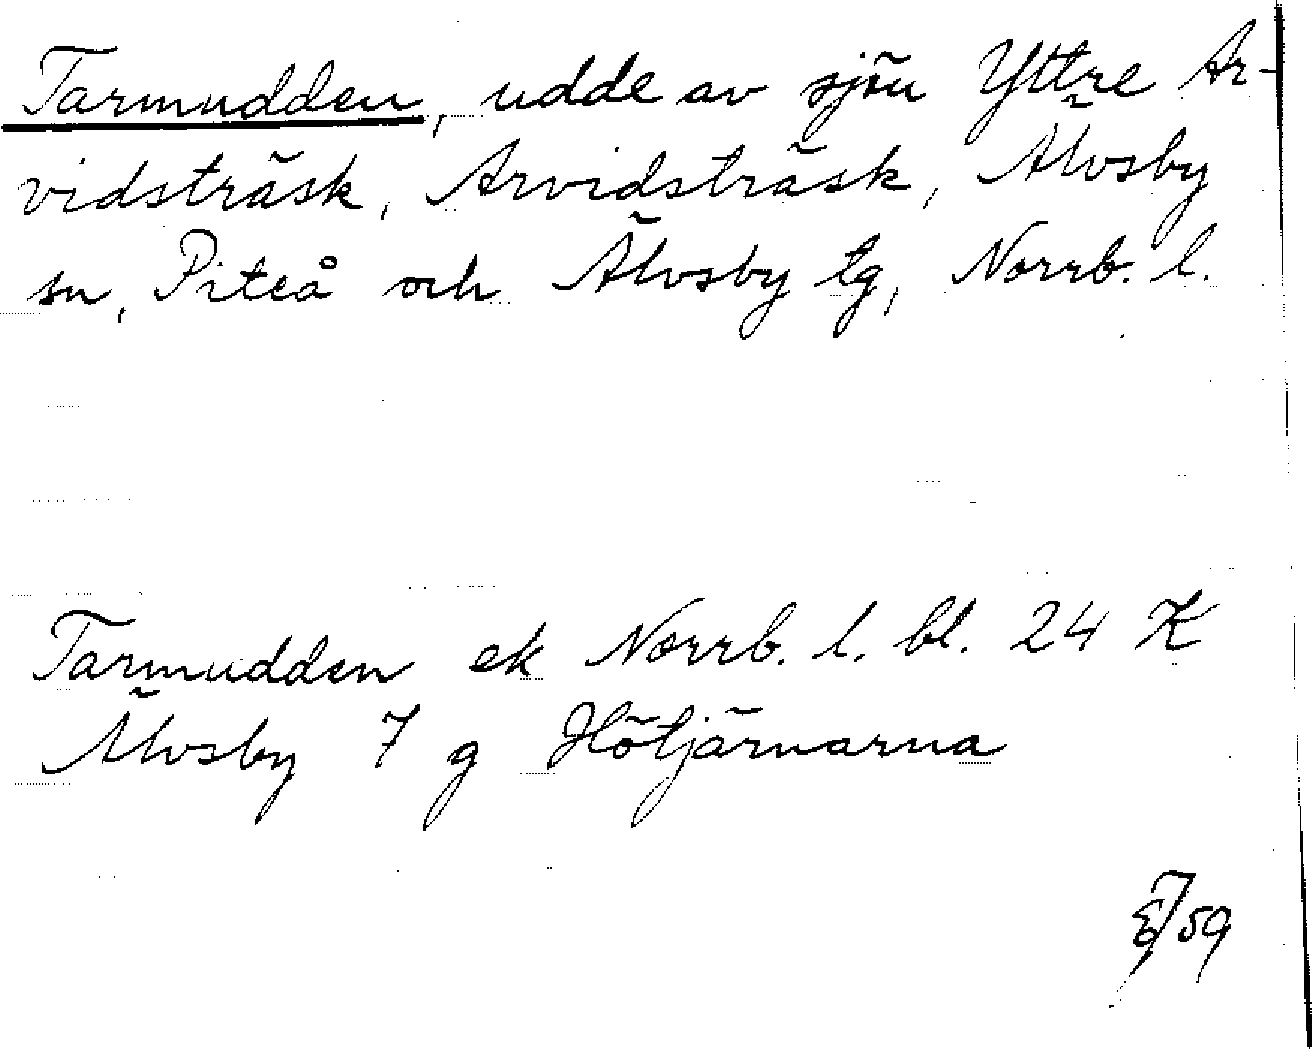 Tarmudden, udde av sjön Yttre Ar-
vidsträsk, Arvidsträsk, Älvsby
sn, Piteå och Älvsby tg, Norrb. l.
Tarmudden ek Norrb. l. bl. 24 K
Älvsby 7 g Hötjärnarna
59